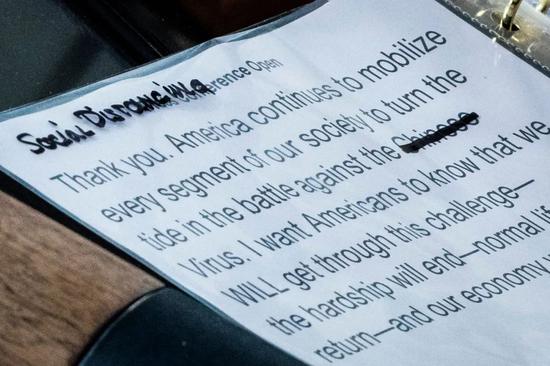 Social Distancing erence Open
Thank you. America continues to mobilize
every segment of our society to turn the
tide in the battle against the Chinese
Virus. I want Americans to know that we
WILL get through this challenge—
the hardship will end—normal lif
return—and our economy